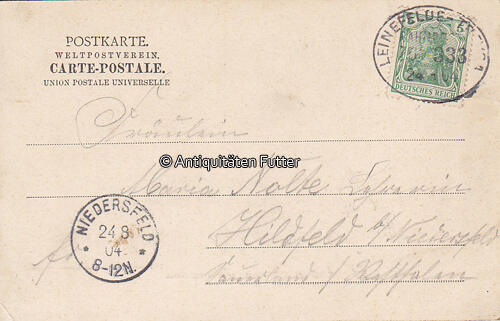 POSTKARTE.
WELTPOSTVEREIN,
CARTE-POSTALE.
UNION POSTALE UNIVERSELLE
LEINEFELDE-
333
24
5
DEUTSCHES REICH
Fräulein
© Antiquitäten Futter
Maria Nolte Lehrerin
Hildfeld b/Niedersfeld
Sauerland / Westfalen
NIEDERSFELD
24 8
04
8-12N.